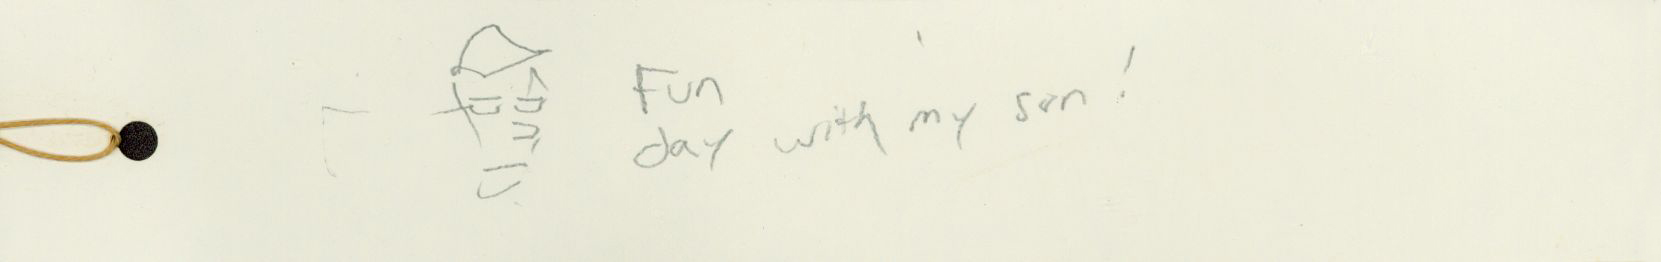 Fun
day with my son!